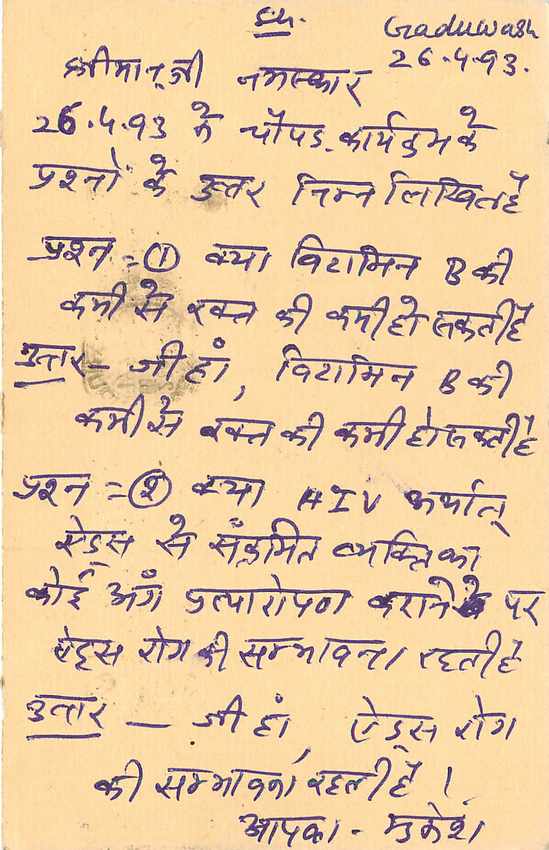 ॐ
Gaduwash
26.4.93.
श्रीमान् जी नमस्कार
26.4.93 के चौपड. कार्यक्रम के
प्रश्नों के उत्तर निम्न लिखित है
प्रश्न = ① क्या विटामिन B की
कमी से रक्त की कमी हो सकती है
उत्तर - जी हां, विटामिन B की
कमी से रक्त की कमी हो सकती है
प्रश्न = ② क्या HIV अर्थात्
ऐड्स से संक्रमित व्यक्ति का
कोई अंग प्रत्यारोपण कराने पर
ऐड्स रोग की सम्भावना रहती है
उत्तर — जी हां, ऐड्स रोग
की सम्भावना रहती है ।
आपका - मुकेश।